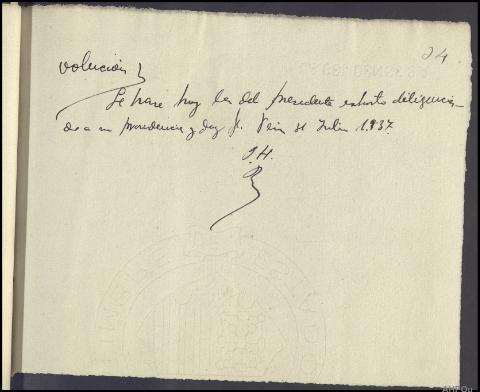 24
volución
Se hace hoy del precedente exhorto diligencia-
do a su procedencia y doy fe. 31 Julio 1.937.